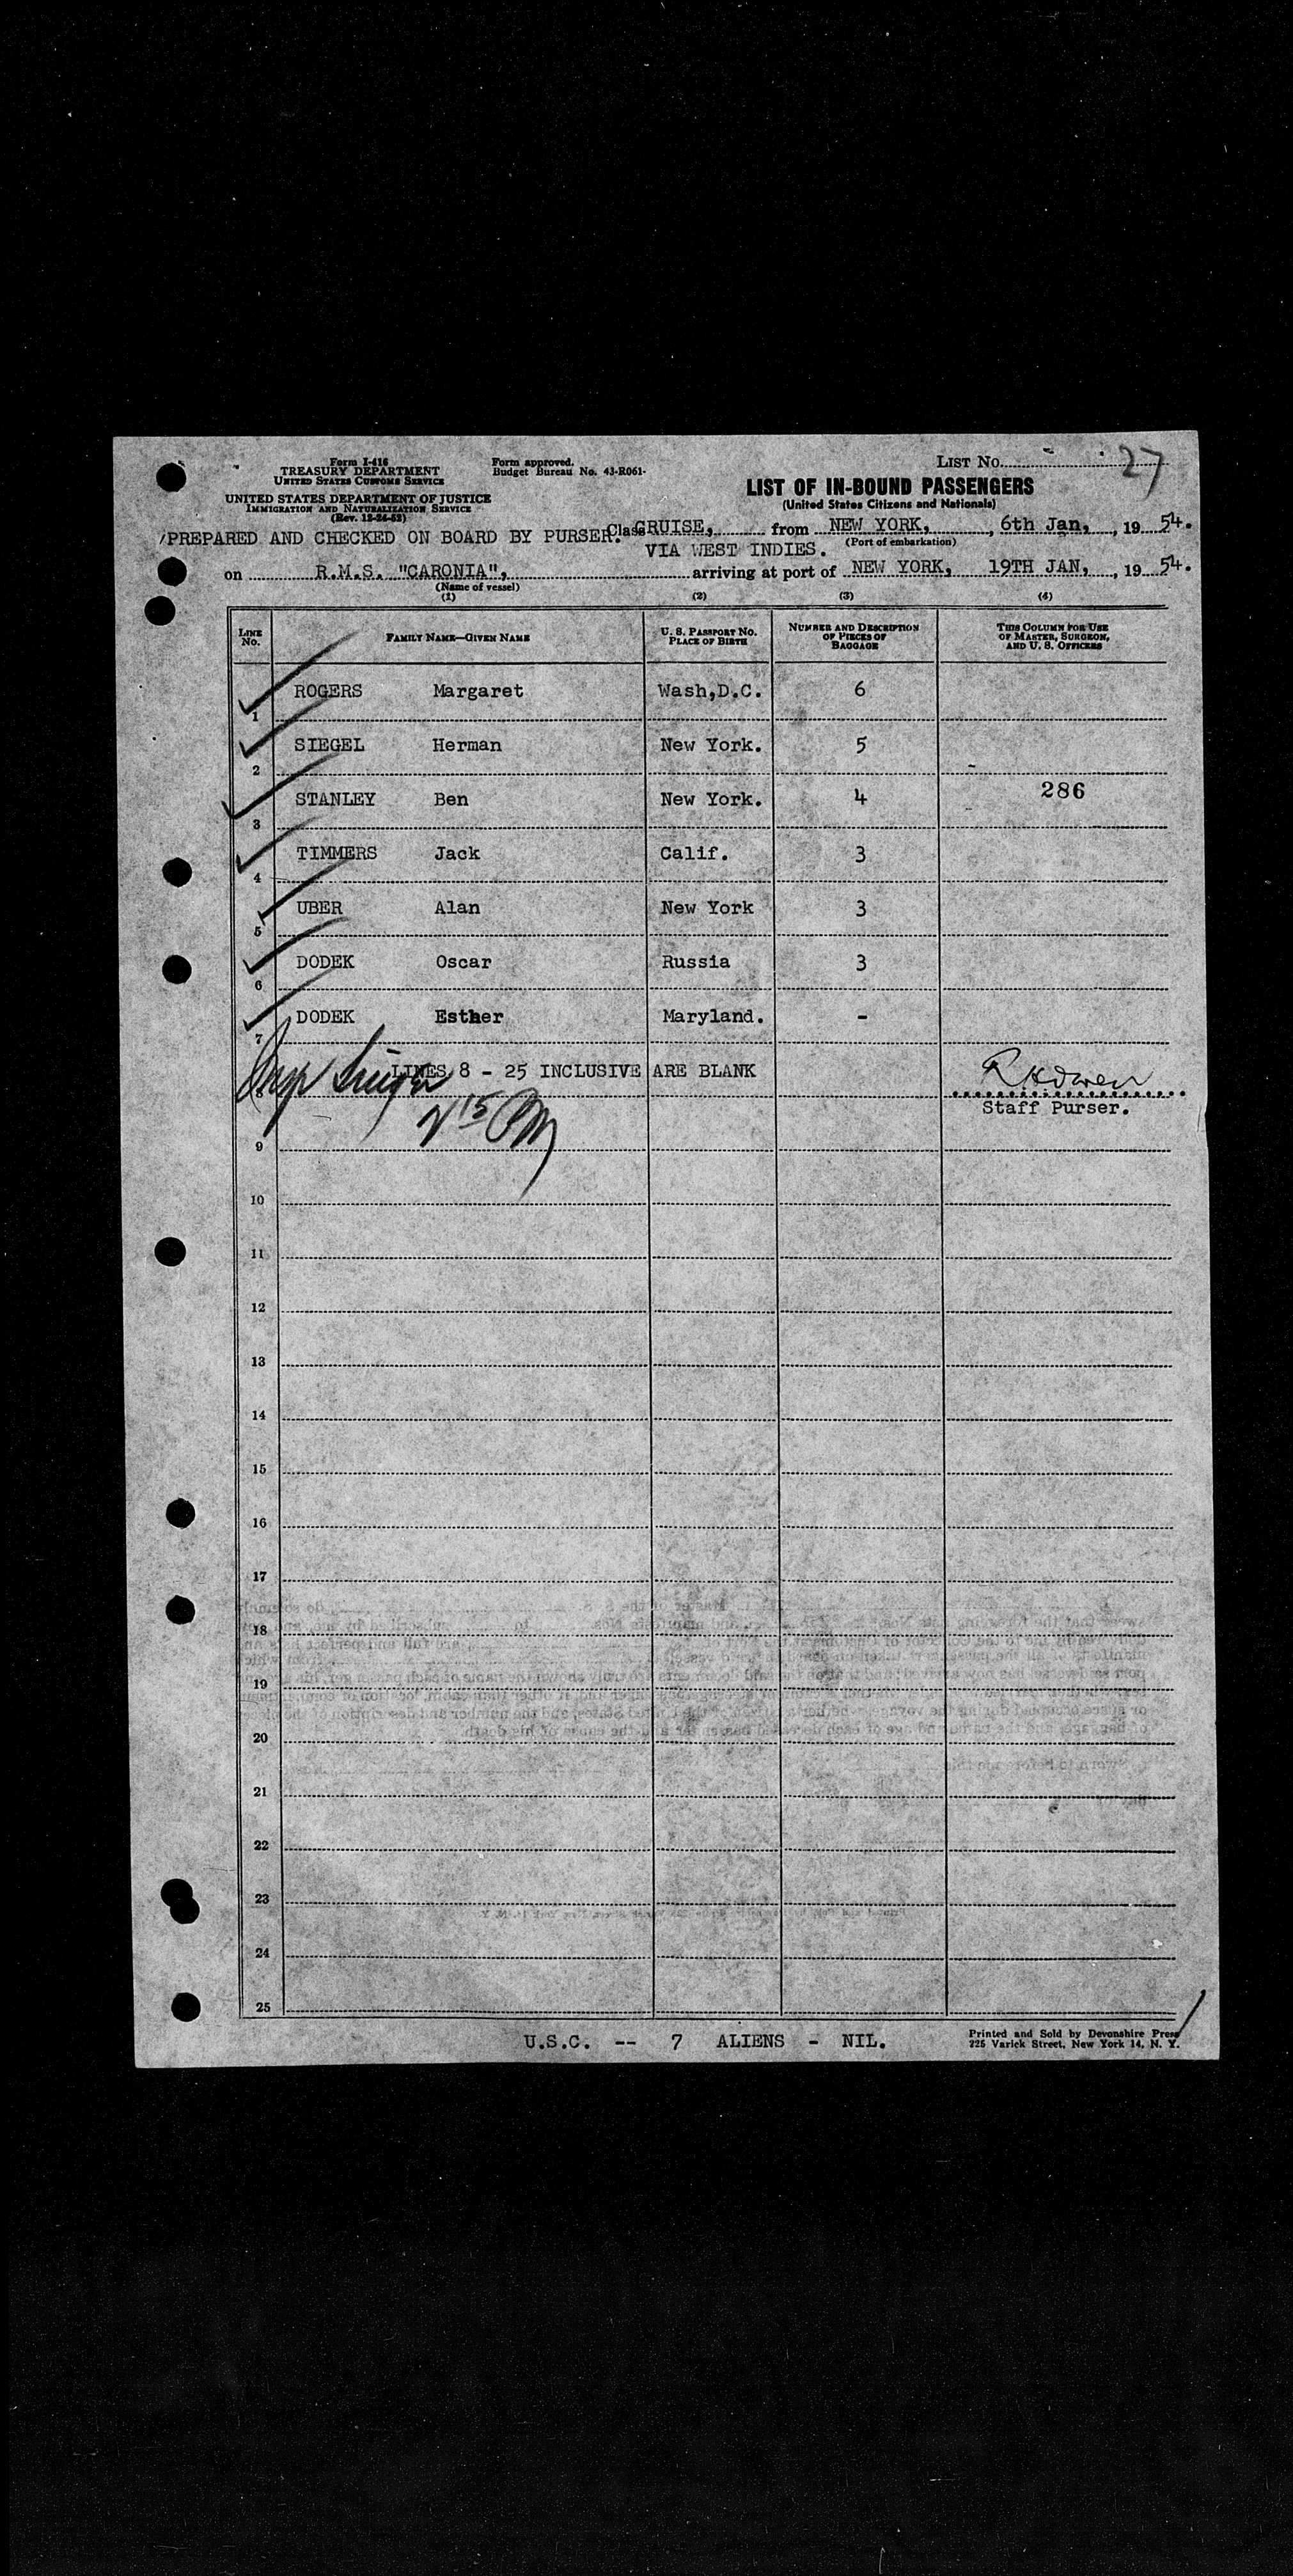 Form I-416
TREASURY DEPARTMENT
UNITED STATES CUSTOMS SERVICE
UNITED STATES DEPARTMENT OF JUSTICE
IMMIGRATION AND NATURALIZATION SERVICE
(Rev. 12-24-52)
Form approved.
Budget Bureau No. 43-R061-
LIST No. 27
LIST OF IN-BOUND PASSENGERS
(United States Citizens and Nationals)
/PREPARED AND CHECKED ON BOARD BY PURSER. Class CRUISE, from NEW YORK, , 6th Jan, , 19 54.
VIA WEST INDIES. (Port of embarkation)
on R.M.S. "CARONIA", arriving at port of NEW YORK, 19TH JAN, , 19 54.
(Name of vessel)
(1) (2) (3) (4)
LINE No. FAMILY NAME—GIVEN NAME U. S. PASSPORT No. PLACE OF BIRTH NUMBER AND DESCRIPTION OF PIECES OF BAGGAGE THIS COLUMN FOR USE OF MASTER, SURGEON, AND U. S. OFFICERS
1 ROGERS Margaret Wash,D.C. 6
2 SIEGEL Herman New York. 5
3 STANLEY Ben New York. 4 286
4 TIMMERS Jack Calif. 3
5 UBER Alan New York 3
6 DODEK Oscar Russia 3
7 DODEK Esther Maryland. -
8 LINES 8 - 25 INCLUSIVE ARE BLANK
Staff Purser.
9
10
11
12
13
14
15
16
17
18
19
20
21
22
23
24
25
U.S.C. -- 7 ALIENS - NIL.
Printed and Sold by Devonshire Press
225 Varick Street, New York 14, N. Y.